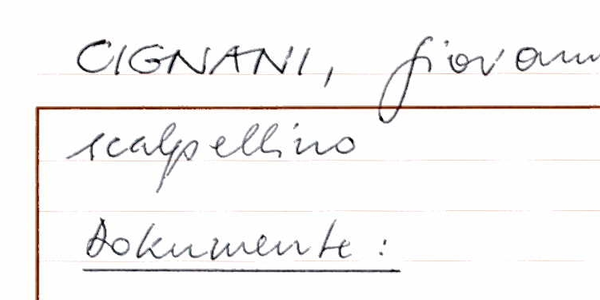 CIGNANI, Giovann
scalpellino
Dokumente: